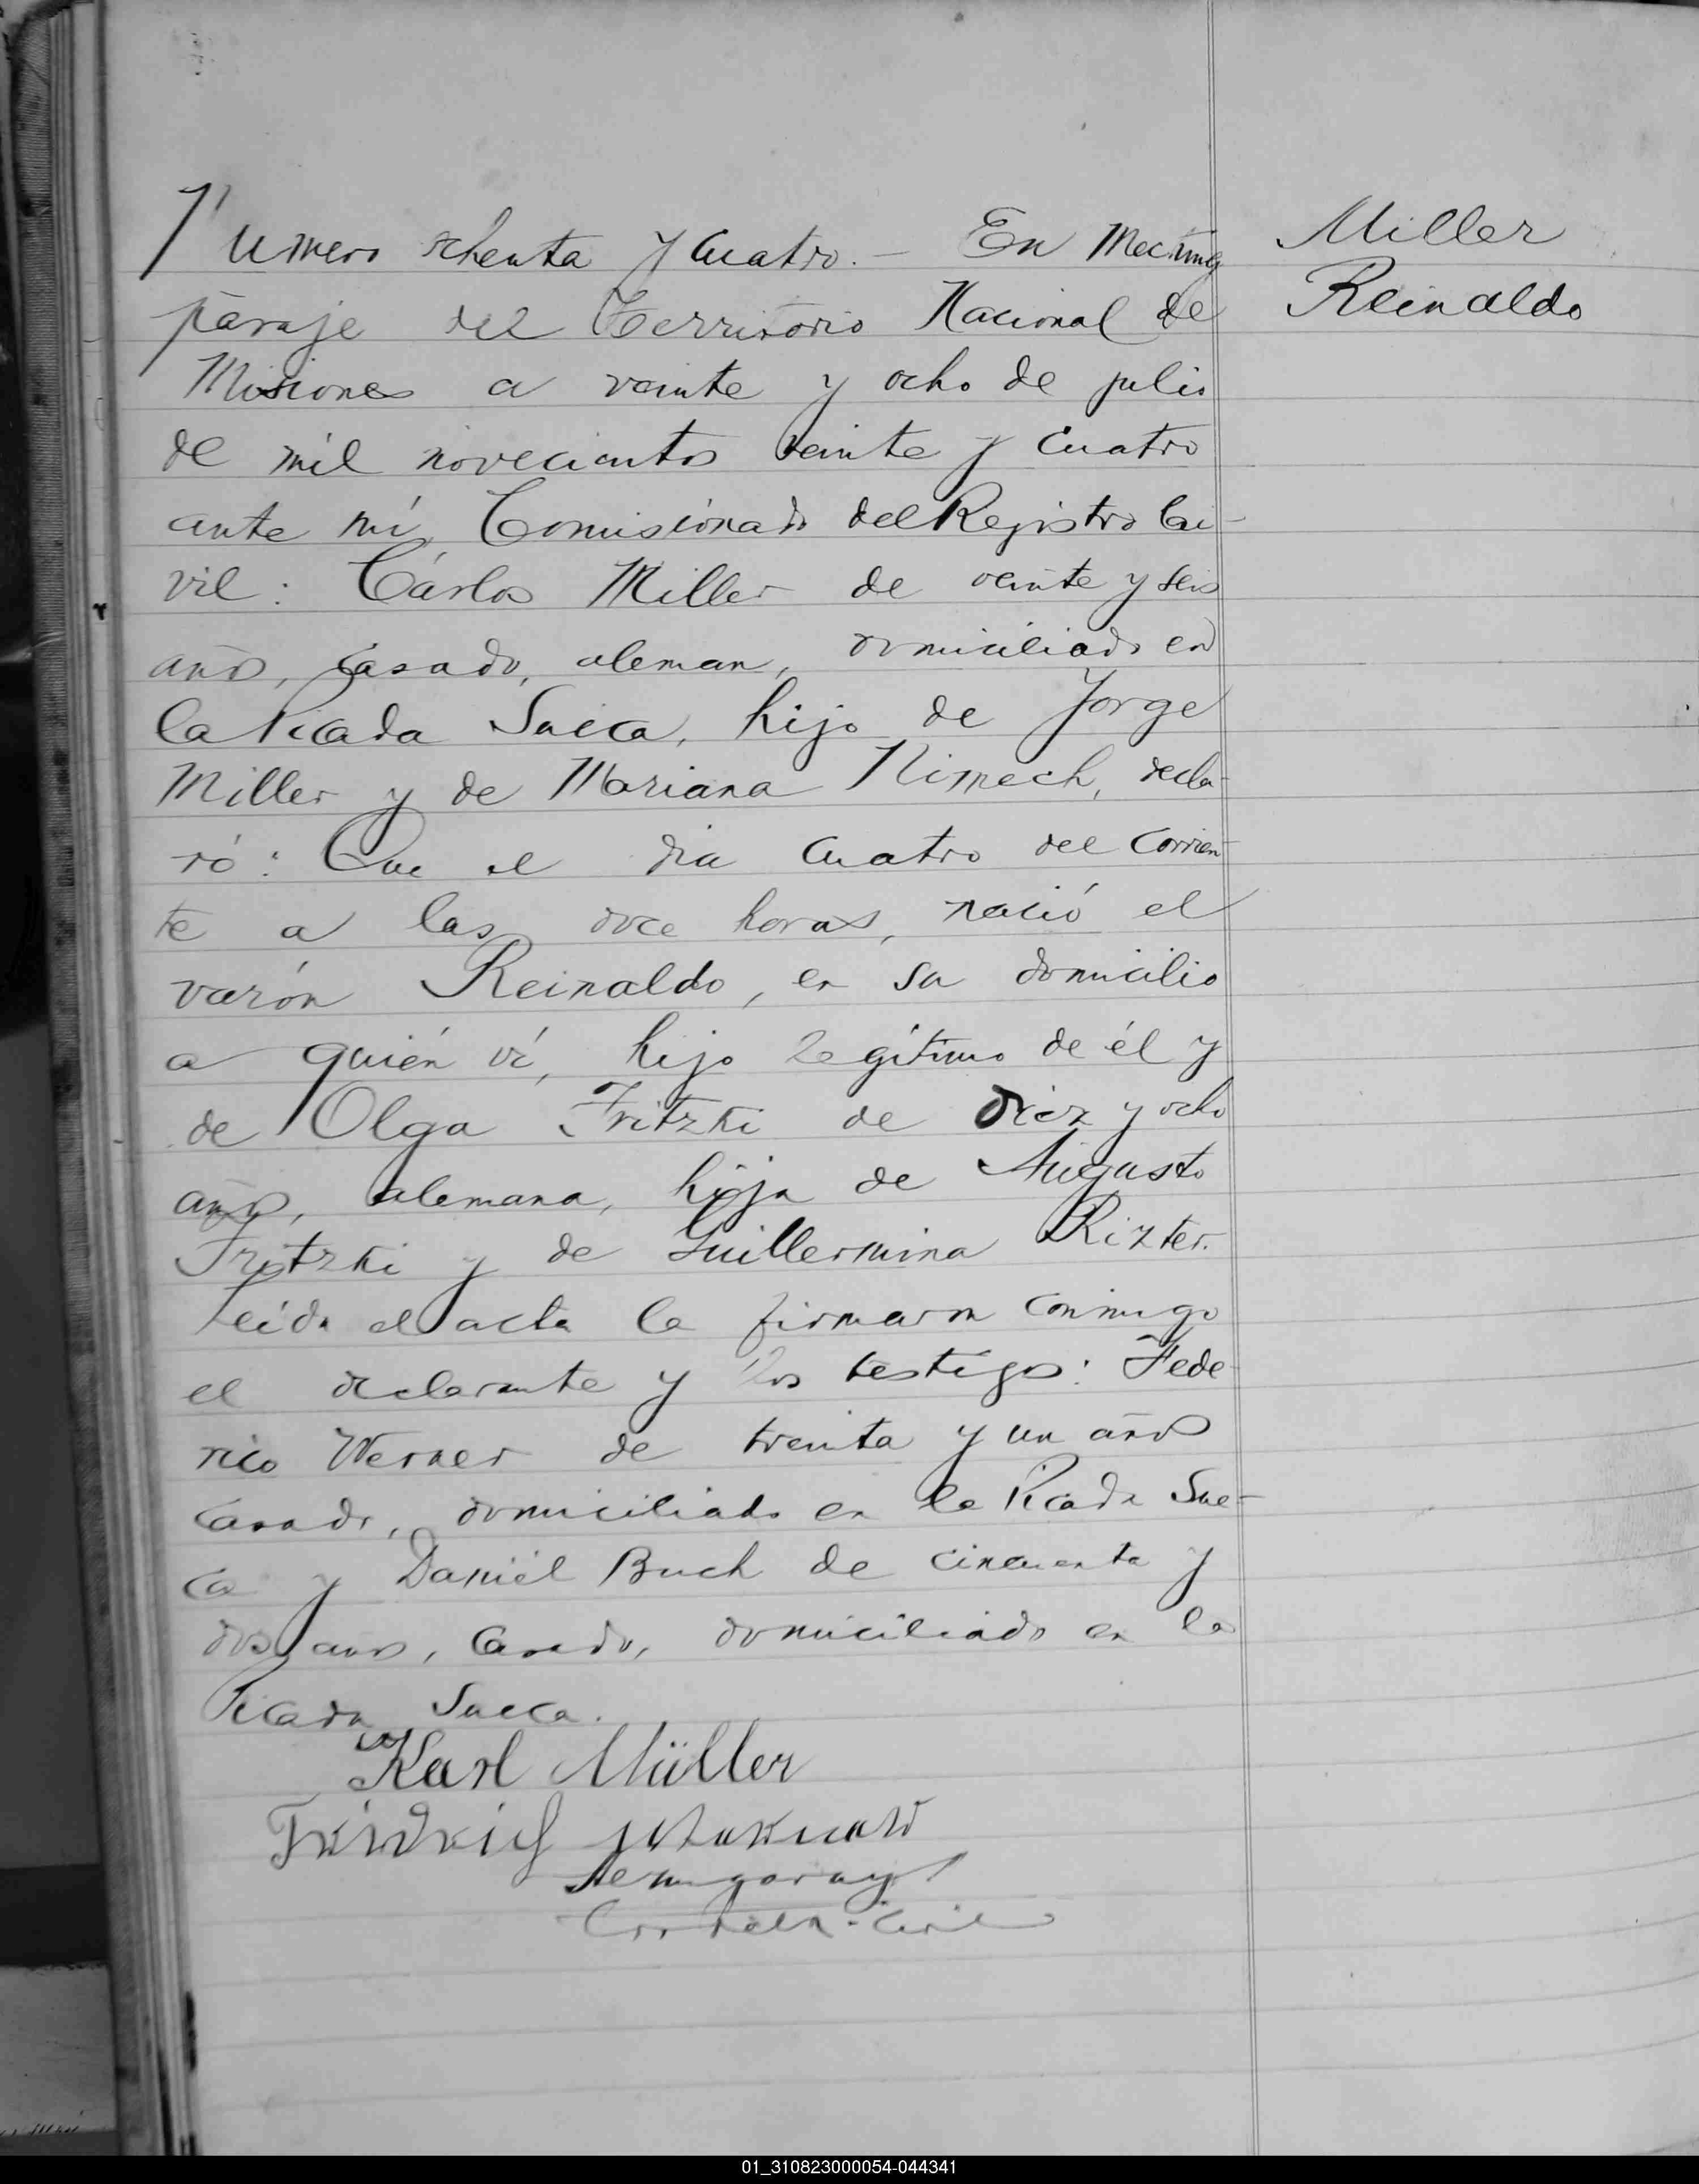 Miller
Reinaldo
Numero ochenta y cuatro.- En Mecking
paraje del Territorio Nacional de
Misiones a veinte y ocho de julio
de mil novecientos veinte y cuatro
ante mí, Comisionado del Registro Ci-
vil: Cárlos Miller de veinte y seis
años, casado, aleman, domiciliado en
la Picada Sueca, hijo de Jorge
Miller y de Mariana Nimech, decla-
ró: Que el dia cuatro del corrien-
te a las doce horas, nació el
varón Reinaldo, en su domicilio
a quién ví, hijo legítimo de él y
de Olga Fritzki de diez y ocho
años, alemana, hija de Augusto
Fritzki y de Guillermina Rizter.
Leída el acta la firmaron conmigo
el declarante y los testigos: Fede-
rico Werner de treinta y un años
casado, domiciliado en la Picada Sue-
ca y Daniel Buch de cincuenta y
dos años, casado, domiciliado en la
Picada Sueca.
Karl Müller
01_310823000054-044341